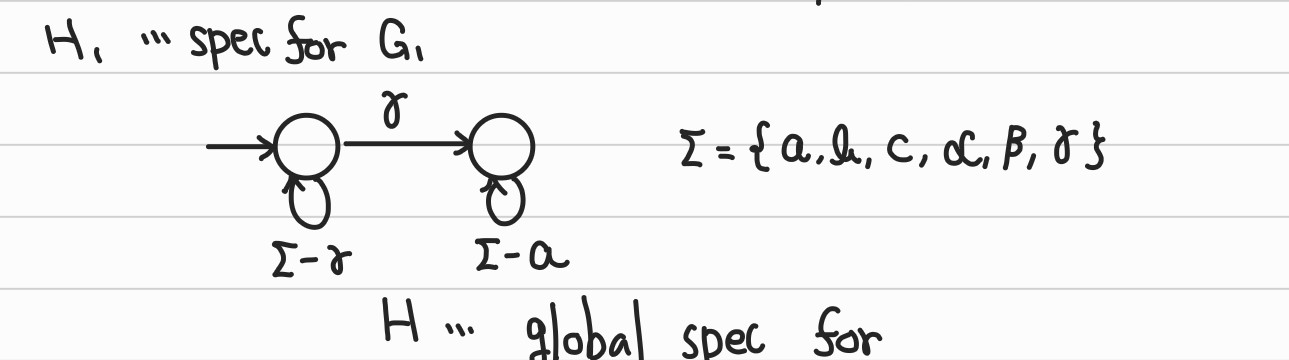 H₁ ... spec for G₁
γ
Σ = {a, b, c, α, β, γ}
Σ-γ Σ-a
H ... global spec for